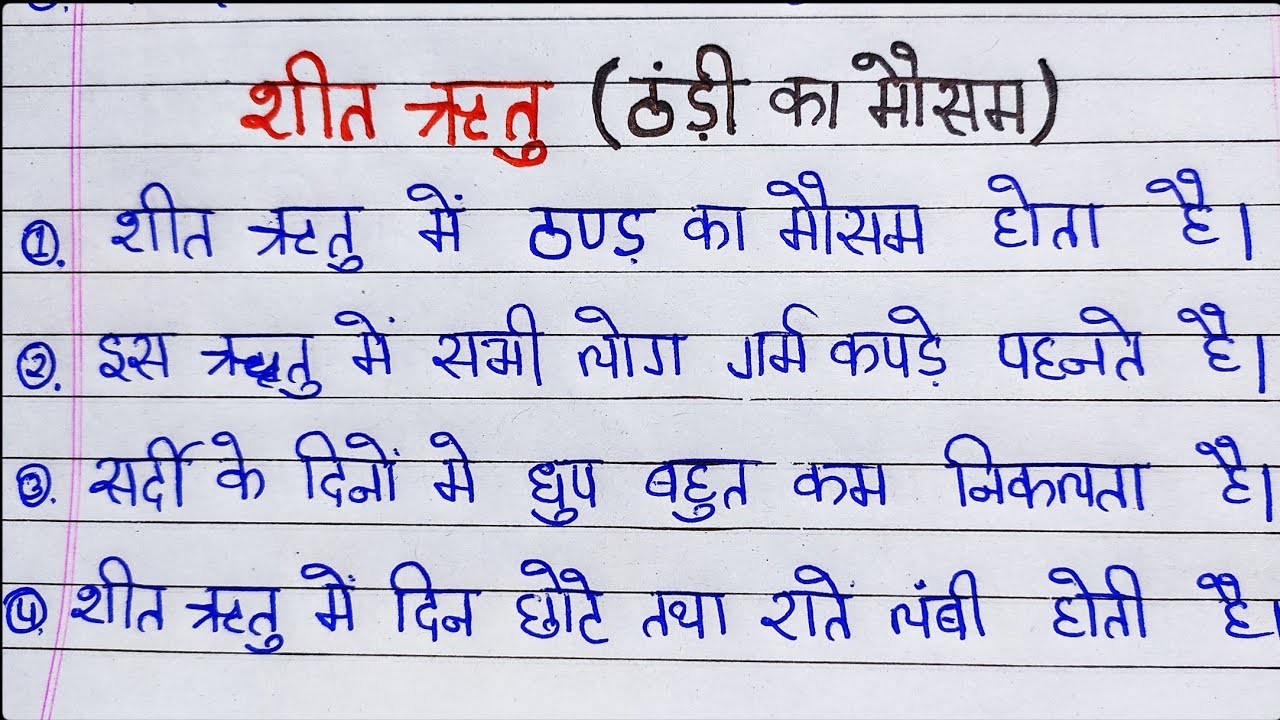 शीत ऋतु (ठंड़ी का मौसम)
1. शीत ऋतु में ठण्ड़ का मौसम होता है।
2. इस ऋतु में सभी लोग गर्म कपड़े पहनते है।
3. सर्दी के दिनों मे धुप बहुत कम निकलता है।
4. शीत ऋतु में दिन छोटे तथा रातें लंबी होती है।